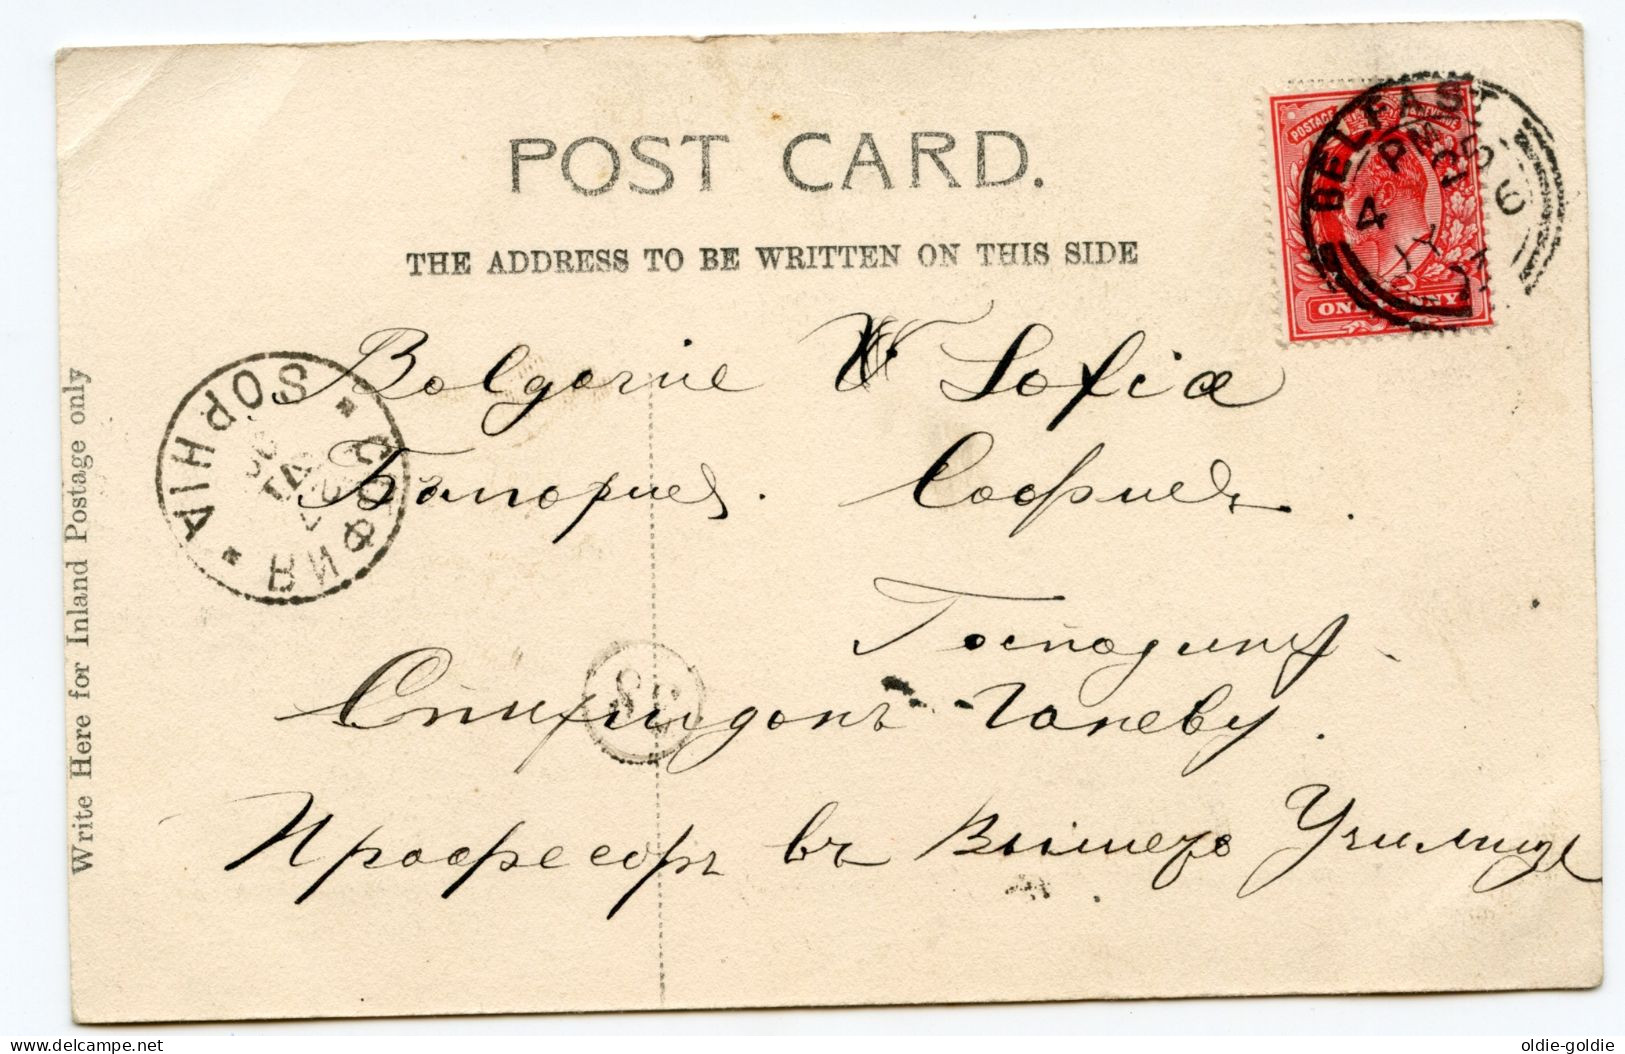 POST CARD.
THE ADDRESS TO BE WRITTEN ON THIS SIDE
POSTAGE REVENUE
ONE PENNY
BELFAST
4 PM
6
Write Here for Inland Postage only
SOPHIA
СОФИЯ
Bolgarie Sofia
Болгория. Софиея.
Господину
Спиридонъ Ганеву.
Профессоръ въ Училище
oldie-goldie
Delcampe.net